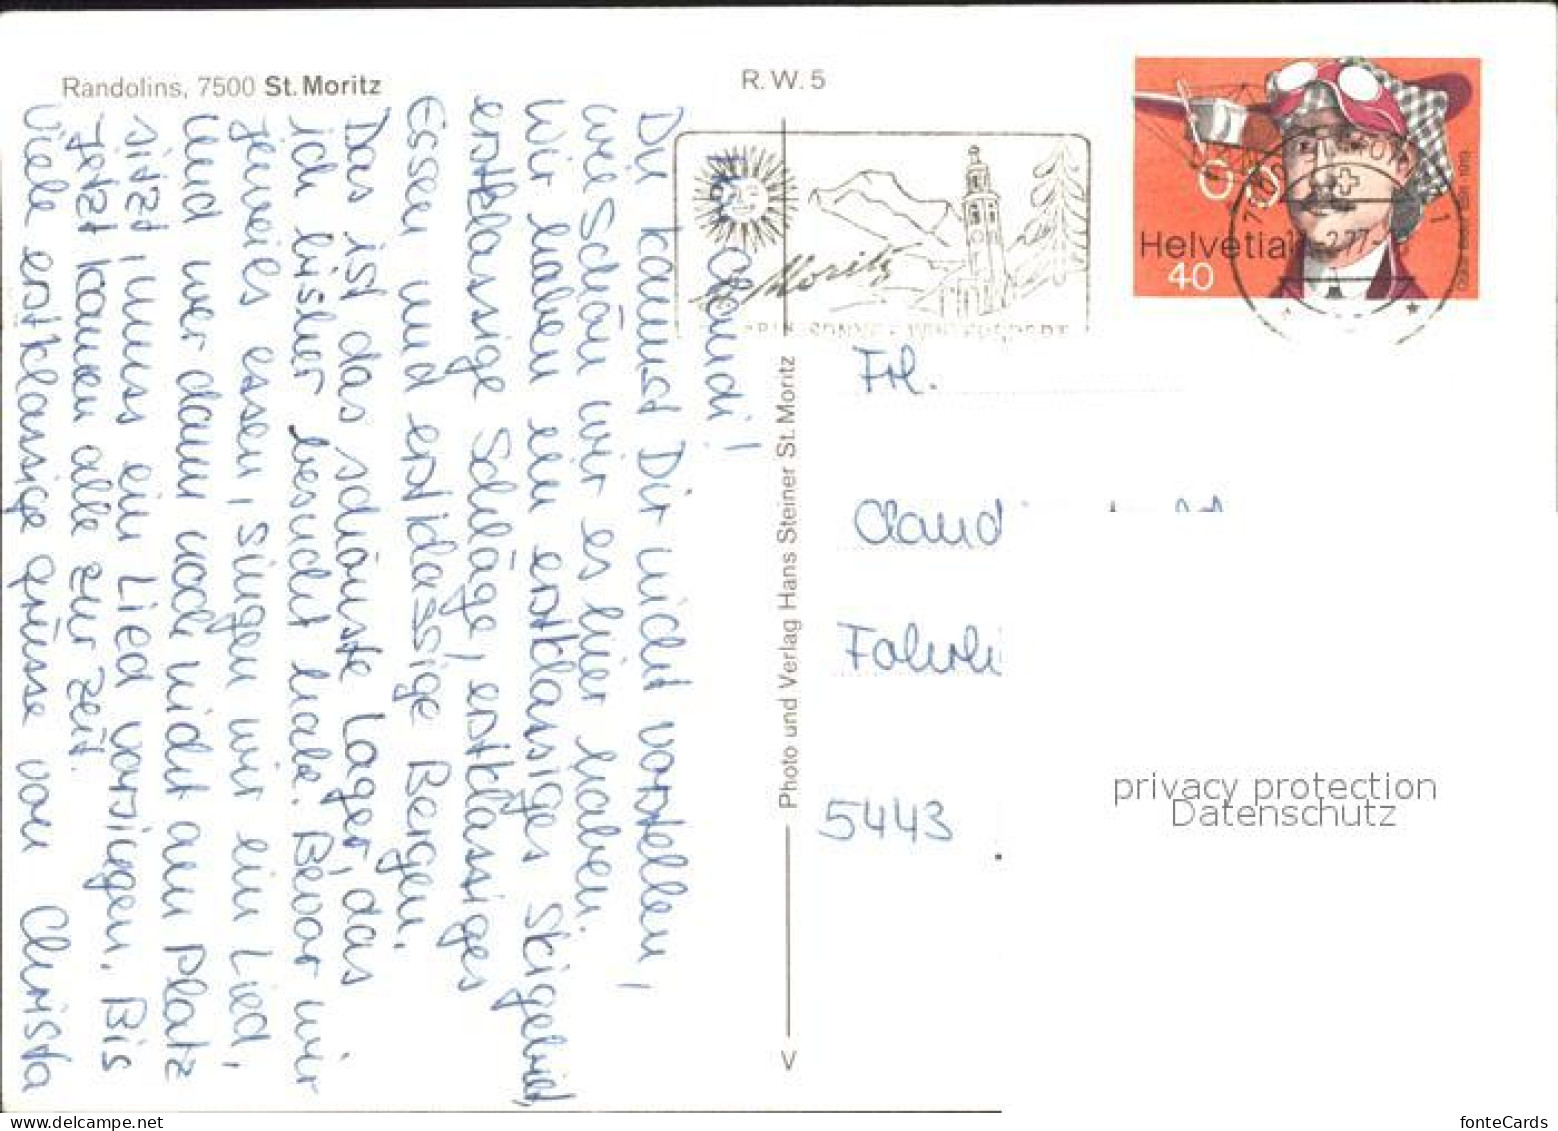 Randolins, 7500 St. Moritz
R. W. 5
Helvetia
40
St. Moritz
Photo und Verlag Hans Steiner St. Moritz
V
Claudi!
Du kannst Dir nicht vorstellen,
wie schön wir es hier haben.
Wir haben ein erstklassiges Skigebiet,
erstklassige Schläge, erstklassiges
Essen und erstklassige Bergen.
Das ist das schönste Lager, das
ich bisher besucht habe. Bevor wir
jeweils essen, singen wir ein Lied,
und wer dann noch nicht am Platz
sitzt, muss ein Lied vorsingen. Bis
jetzt kamen alle zur Zeit.
Viele erstklassige grüsse von Christa
Frl.
5443
privacy protection
Datenschutz
fonteCards
delcampe.net